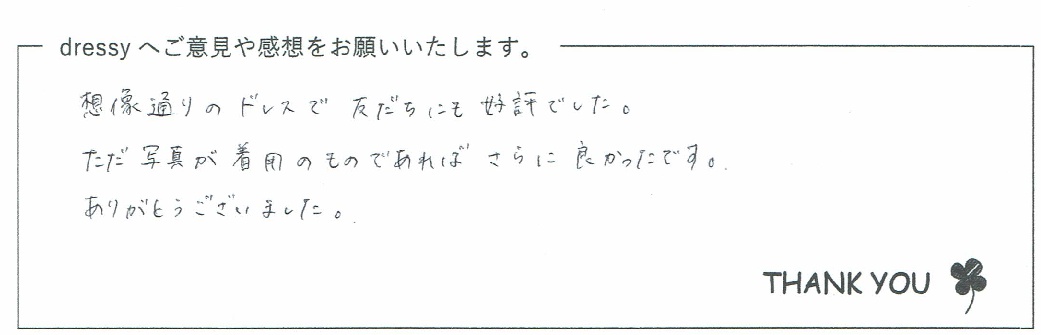 dressy へご意見や感想をお願いいたします。
想像通りのドレスで 友だちにも 好評でした。
ただ 写真が 着用のものであれば さらに 良かったです。
ありがとうございました。
THANK YOU